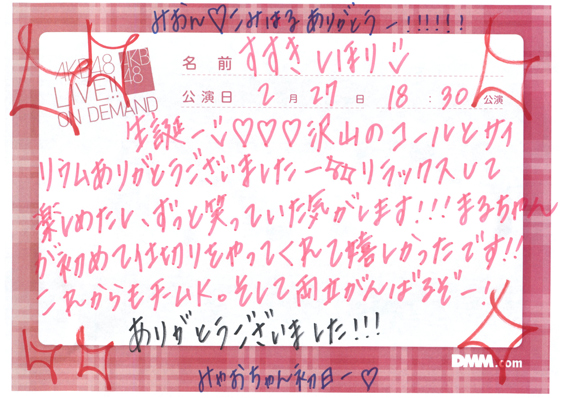 みおん♡こみはるありがとうー!!!!!!
AKB48
LIVE!!
ON DEMAND
AKB
48
名前 すすきしほり
公演日 2月27日 18:30公演
生誕ー♡♡♡沢山のコールとサイ
リウムありがとうございましたー☆☆リラックスして
楽しめたし、ずっと笑っていた気がします!!!まるちゃん
が初めて仕切りをやってくれて嬉しかったです!!
これからもチームK。そして両立がんばるぞー!
ありがとうございました!!!
DMM.com
みゃおちゃん初日ー♡